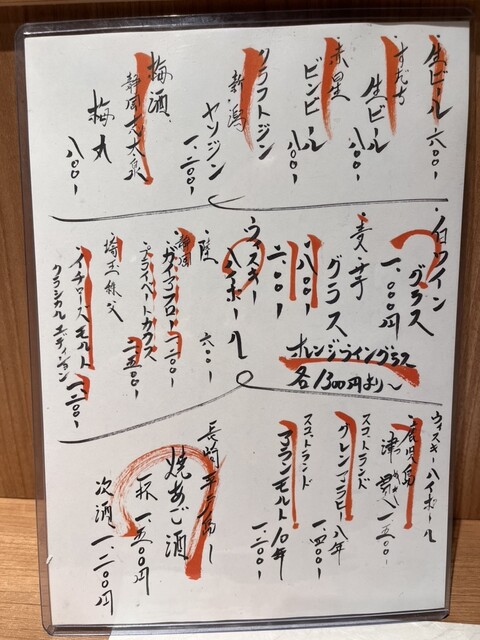 生ビール 六〇〇-
すだち
生ビール 八〇〇-
赤星
ビンビール 八〇〇-
クラフトジン
新潟
ヤソジン 一、二〇〇-
梅酒
静岡
梅丸 八〇〇-
白ワイン
グラス 一、〇〇〇円
麦・芋
グラス 八〇〇-
六〇〇-
オレンジワイングラス
各1300円より〜
ウィスキー
ハイボール
陸 六〇〇-
静岡
ガイアフロー 一、二〇〇-
プライベートカクス 一、五〇〇-
埼玉秩父
イチローズモルト 一、二〇〇-
クラシカルエディション
ウィスキーハイボール
鹿児島
津貫 一、五〇〇-
スコットランド
グレンアラヒー 八年
一、四〇〇-
スコットランド
アランモルト10年
一、二〇〇-
長崎平戸
焼あご酒
一杯 一、五〇〇円
次酒 一、二〇〇円